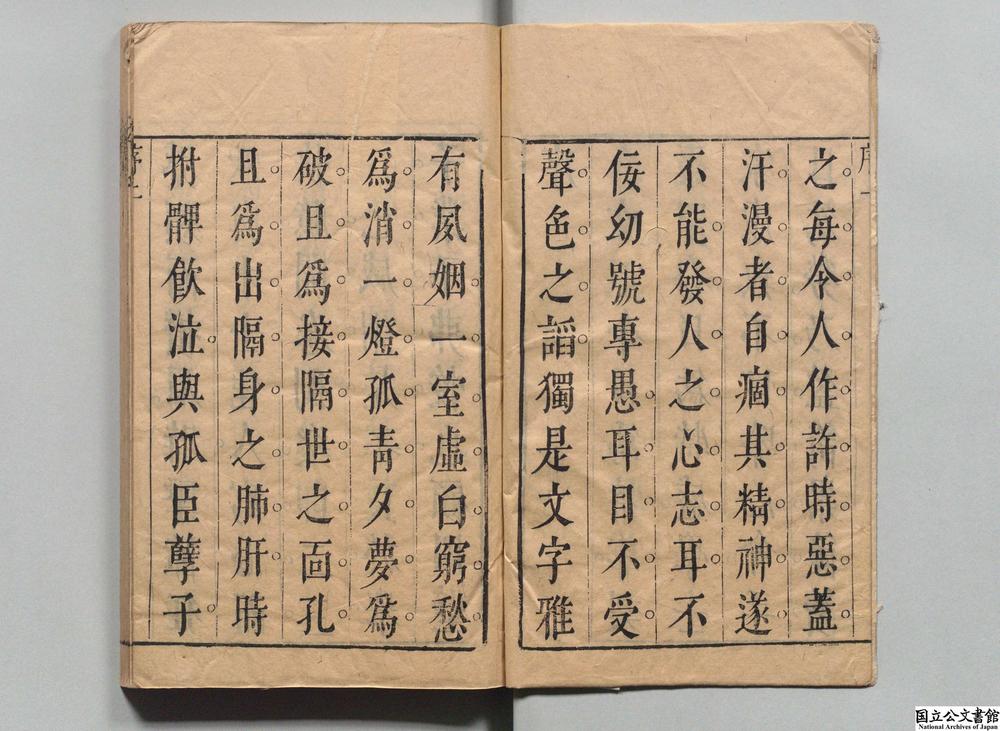 之每令人作許時惡蓋
汗漫者自痼其精神遂
不能發人之心志耳不
佞幼號專愚耳目不受
聲色之謟獨是文字雅
有夙姻一室虛白窮愁
爲消一燈孤青夕夢爲
破且爲接隔世之面孔
且爲出隔身之肺肝時
拊髀飲泣與孤臣孽子
国立公文書館
National Archives of Japan